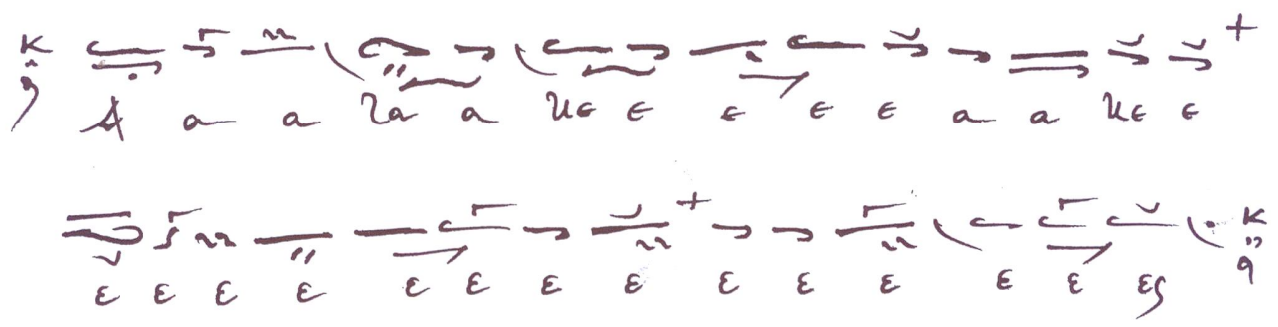 Α α α να α νε ε ε ε ε α α νε ε
ε ε ε ε ε ε ε ε ε ε ε ε ε ες